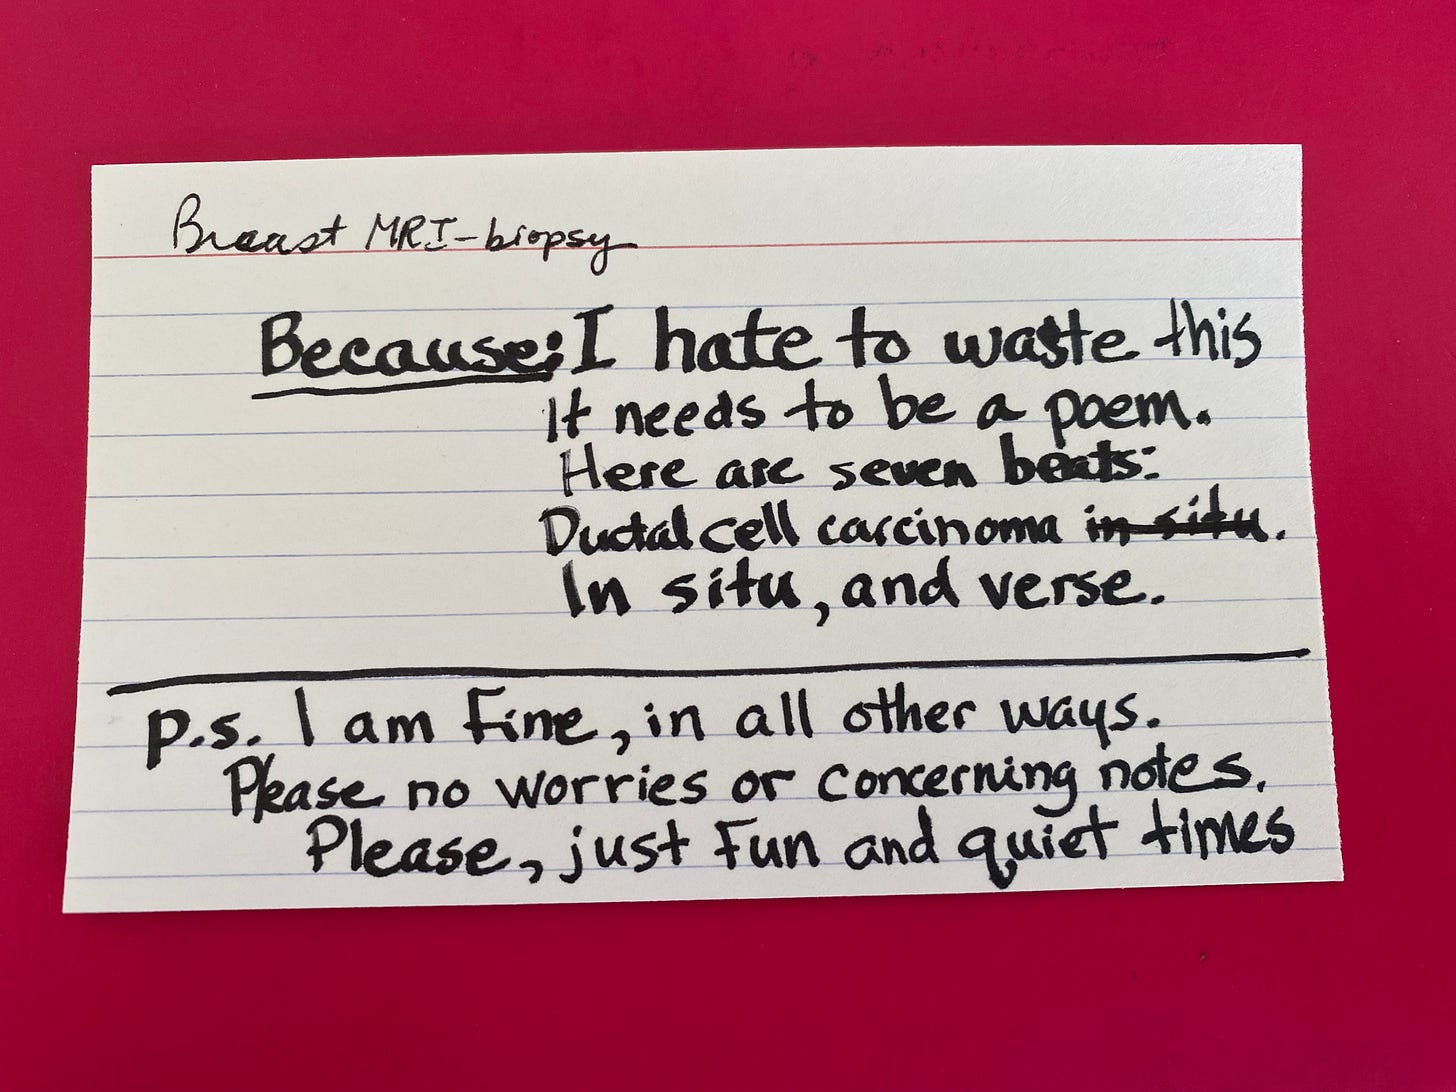 Breast MRI-biopsy
Because: I hate to waste this
It needs to be a poem.
Here are seven beats:
Ductal cell carcinoma in situ.
In situ, and verse.
p.s. I am fine, in all other ways.
Please no worries or concerning notes.
Please, just fun and quiet times